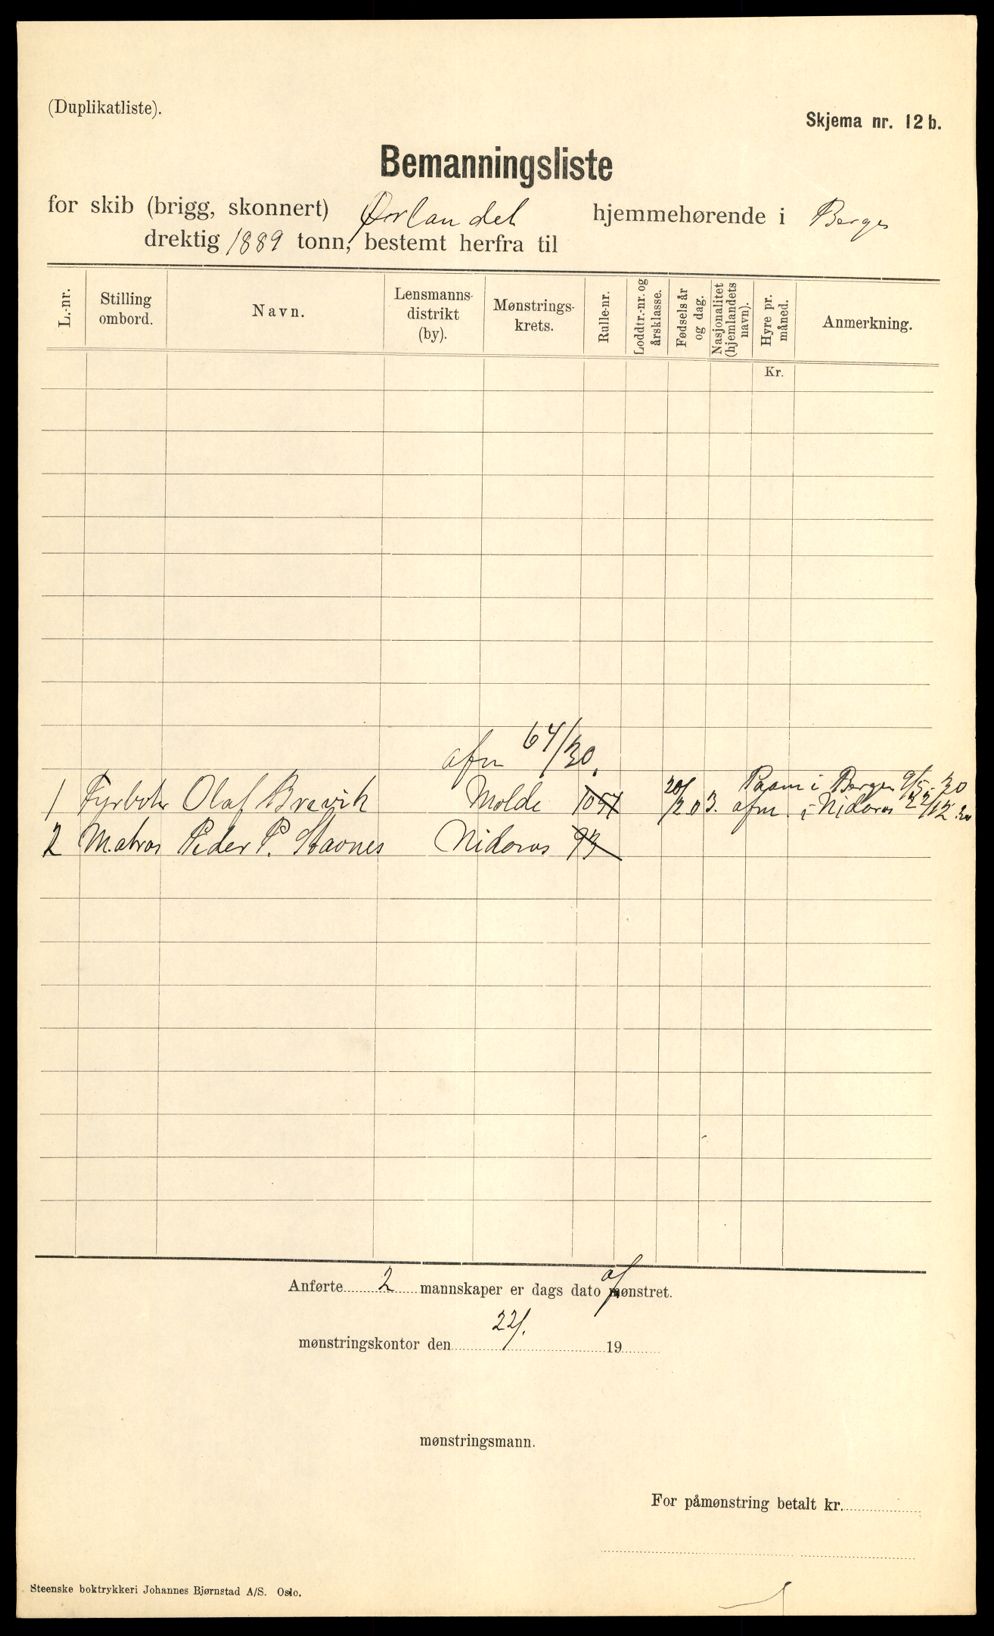 (Duplikatliste).
Skjema nr. 12 b.
Bemanningsliste
for skib (brigg, skonnert) Ørlandet hjemmehørende i Bergen
drektig 1889 tonn, bestemt herfra til
L.-nr. Stilling ombord. Navn. Lensmanns-distrikt (by). Mønstrings-krets. Rulle-nr. Loddtr.-nr. og årsklasse. Fødselsår og dag. Nasjonalitet (hjemlandets navn). Hyre pr. måned. Anmerkning.
Kr.
afm 64/30.
1 Fyrboter Olaf Brevik Molde 1057 20/12 03. Paam i Bergen 9/5 30
afm. i Nidaros 22/12 30
2 Matros Peder P. Stavnes Nidaros 93
Anførte 2 mannskaper er dags dato afmønstret.
mønstringskontor den 22/. 19
mønstringsmann.
For påmønstring betalt kr.
Steenske boktrykkeri Johannes Bjørnstad A/S. Oslo.